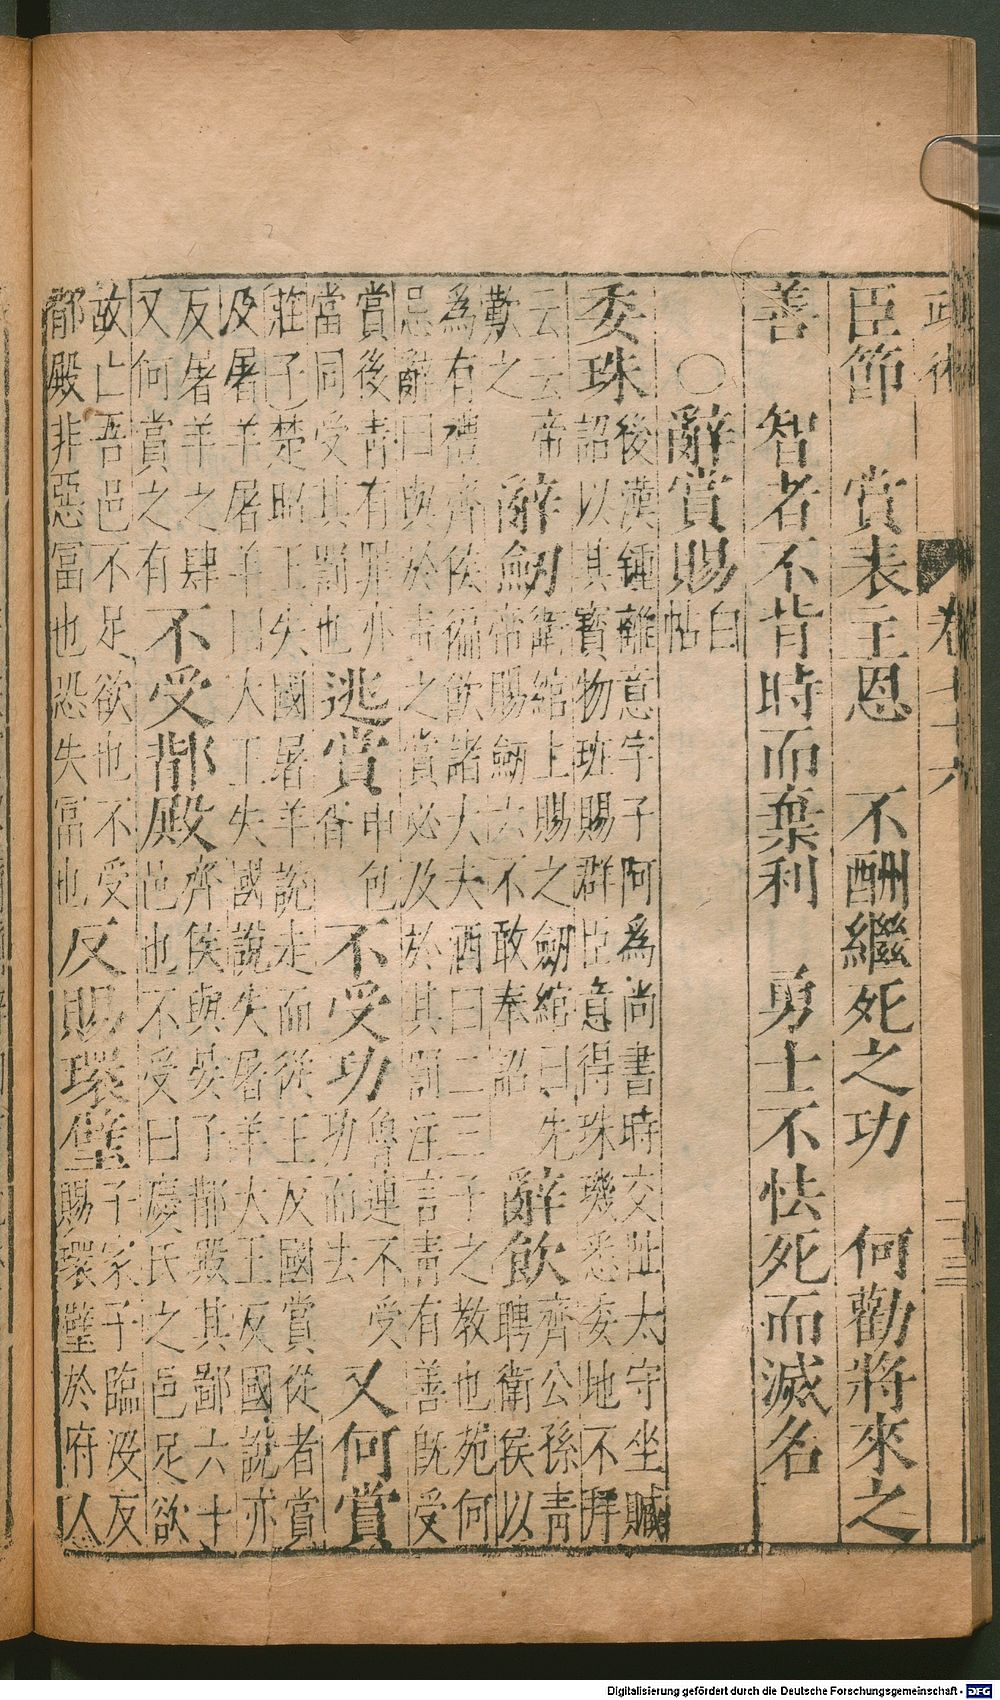 政術 卷十六
臣節 賞表主恩 不酬繼死之功 何勸將來之
善 智者不背時而棄利 勇士不怯死而滅名
○辭賞賜 白帖
委珠 後漢鍾離意字子阿為尚書時交阯太守坐贓
詔以其寳物班賜群臣意得珠璣悉委地不拜
云云帝
歎之 辭劒 衛綰上賜之劒綰曰先
帝賜劒六不敢奉詔 辭飲 齊公孫青
聘衛侯以
為有禮齊侯徧飲諸大夫酒曰二三子之教也苑何
忌辭曰與於青之賞必及於其罰注言青有善既受
賞後青有罪亦
當同受其罰也 逃賞 申包
胥 不受功 魯連不受
功而去 又何賞
莊子楚昭王失國屠羊說走而從王反國賞從者賞
及屠羊屠羊曰大王失國說失屠羊大王反國說亦
反屠羊之肆
又何賞之有 不受鄁殿 齊侯與晏子鄁殿其鄙六十
邑也不受曰慶氏之邑足欲
故亡吾邑不足欲也不受
鄁殿非惡冨也恐失冨也 反賜環璧 子家子臨没反
賜環璧於府人
Digitalisierung gefördert durch die Deutsche Forschungsgemeinschaft - DFG